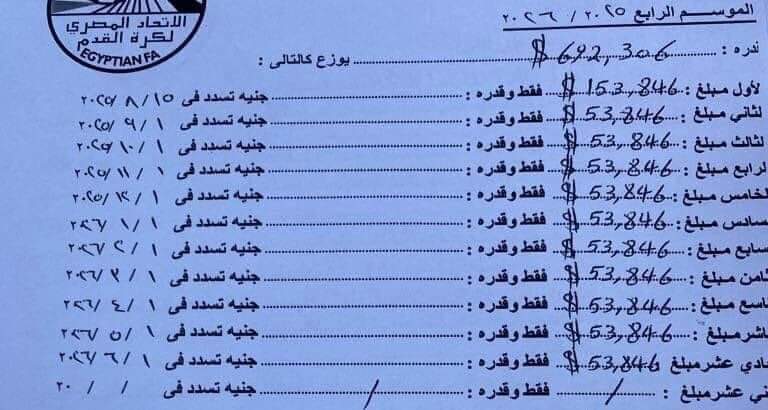 الاتحاد المصرى
لكرة القدم
EGYPTIAN FA
الموسم الرابع ٢٠٢٥ / ٢٠٢٦
قدره : $ 692,306 يوزع كالتالى :
لأول مبلغ : $ 153,846 فقط وقدره : جنيه تسدد فى ١٥ / ٨ / ٢٠٢٥
لثانى مبلغ : $ 53,846 فقط وقدره : جنيه تسدد فى ١ / ٩ / ٢٠٢٥
لثالث مبلغ : $ 53,846 فقط وقدره : جنيه تسدد فى ١ / ١٠ / ٢٠٢٥
لرابع مبلغ : $ 53,846 فقط وقدره : جنيه تسدد فى ١ / ١١ / ٢٠٢٥
لخامس مبلغ : $ 53,846 فقط وقدره : جنيه تسدد فى ١ / ١٢ / ٢٠٢٥
سادس مبلغ : $ 53,846 فقط وقدره : جنيه تسدد فى ١ / ١ / ٢٠٢٦
سابع مبلغ : $ 53,846 فقط وقدره : جنيه تسدد فى ١ / ٢ / ٢٠٢٦
ثامن مبلغ : $ 53,846 فقط وقدره : جنيه تسدد فى ١ / ٣ / ٢٠٢٦
تاسع مبلغ : $ 53,846 فقط وقدره : جنيه تسدد فى ١ / ٤ / ٢٠٢٦
اشر مبلغ : $ 53,846 فقط وقدره : جنيه تسدد فى ١ / ٥ / ٢٠٢٦
ادي عشر مبلغ : $ 53,846 فقط وقدره : جنيه تسدد فى ١ / ٦ / ٢٠٢٦
ني عشر مبلغ : / فقط وقدره : / جنيه تسدد فى / / ٢٠